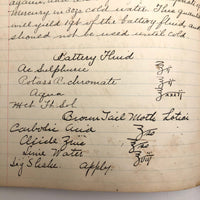 again, and
Mercury in 32 gs cold water. This quan
will yield 1 pt of the battery fluid and
should not be used until cold.
Battery Fluid
Ac Sulphuric ℥
Potass Bichromate ℥
Aqua ℥
Mft Ft Sol
Brown Tail Moth Lotion
Carbolic Acid ℥ss
Oxide Zinc ℥ss
Lime Water ℥viii
Sig Shake Apply.